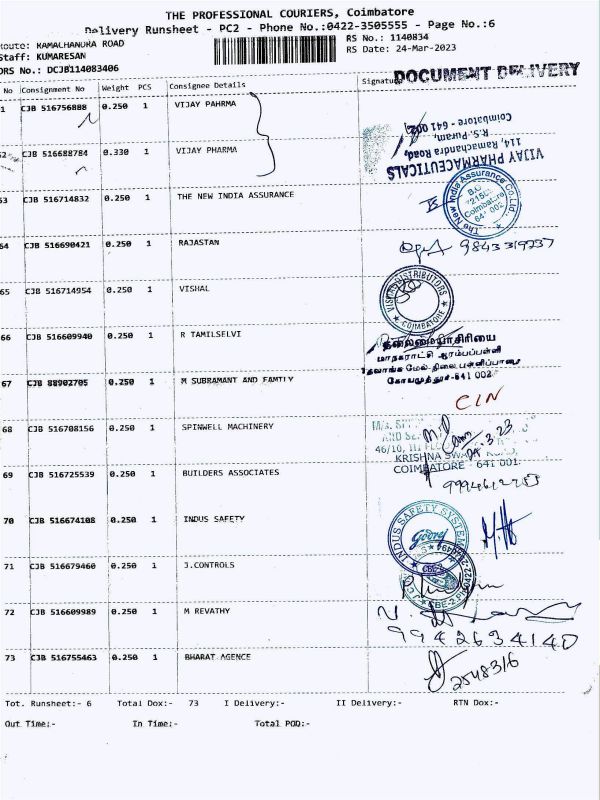 THE PROFESSIONAL COURIERS, Coimbatore
Delivery Runsheet - PC2 - Phone No.:0422-3505555 - Page No.:6
Route: RAMACHANDRA ROAD
Staff: KUMARESAN
DRS No.: DCJB114083406
RS No.: 1140834
RS Date: 24-Mar-2023
No Consignment No Weight PCS Consignee Details Signature
DOCUMENT DELIVERY
1 CJB 516756888 0.250 1 VIJAY PAHRMA
62 CJB 516688784 0.330 1 VIJAY PHARMA
VIJAY PHARMACEUTICALS
114, Ramachandra Road,
R.S. Puram,
Coimbatore - 641 002.
63 CJB 516714832 0.250 1 THE NEW INDIA ASSURANCE
The New India Assurance Co. Ltd.
B.O.
Coimbatore
641 002
64 CJB 516690421 0.250 1 RAJASTAN
9843319237
65 CJB 516714954 0.250 1 VISHAL
VISHAL DISTRIBUTORS
COIMBATORE
66 CJB 516609940 0.250 1 R TAMILSELVI
தலைமையாசிரியை
மாநகராட்சி ஆரம்பப்பள்ளி
கோயமுத்தூர்-641 002
67 CJB 88902705 0.250 1 M SUBRAMANI AND FAMILY
68 CJB 516708156 1 SPINWELL MACHINERY
46/10,
KRISHNA SWAMY ROAD,
COIMBATORE - 641 001
69 CJB 516725539 0.250 1 BUILDERS ASSOCIATES
70 CJB 516674108 0.250 1 INDUS SAFETY
INDUS SAFETY SYSTEMS
Godrej
71 CJB 516679460 0.250 1 J.CONTROLS
72 CJB 516609989 0.250 1 M REVATHY
9942634140
73 CJB 516755463 0.250 1 BHARAT AGENCE
2548316
Tot. Runsheet:- 6 Total Dox:- 73 I Delivery:- II Delivery:- RTN Dox:-
Out Time:- In Time:- Total POD:-